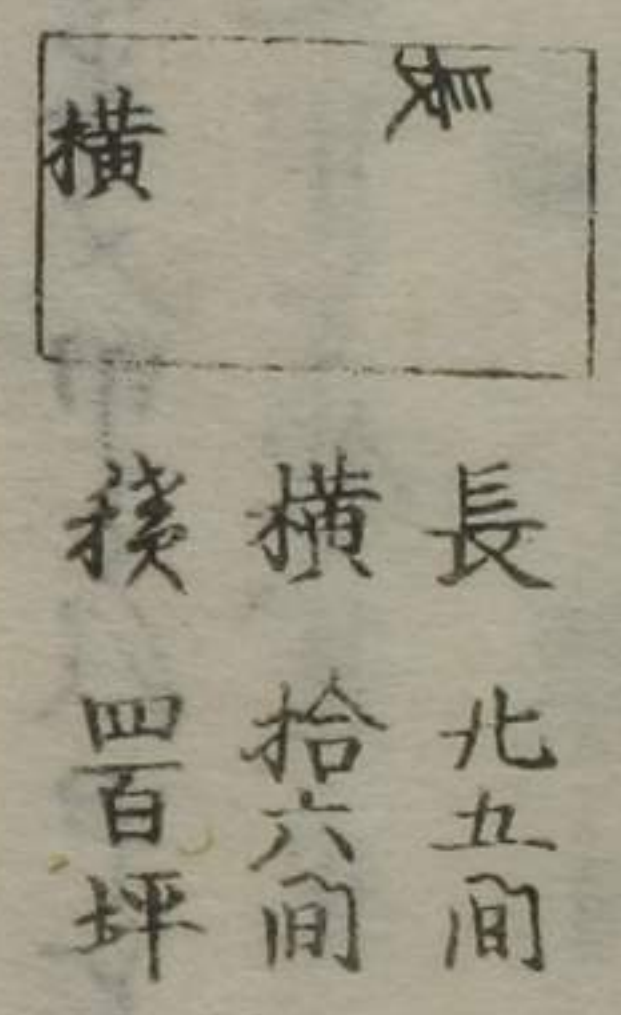 長
横
長 廿五間
横 拾六間
積 四百坪